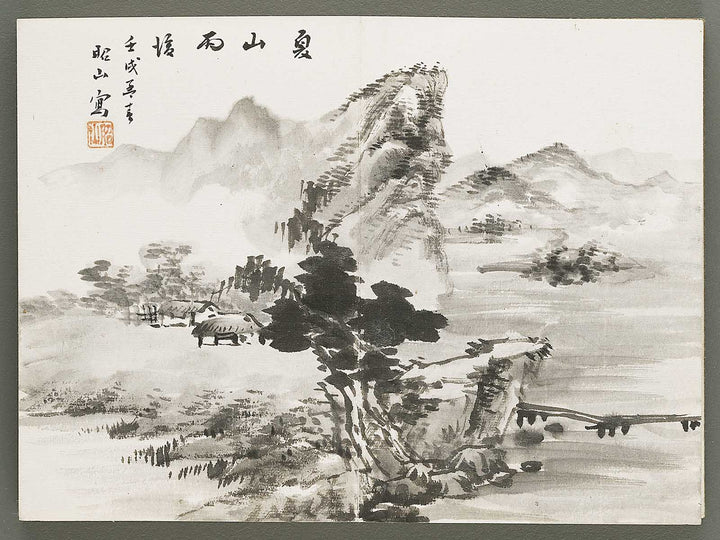 夏山雨後
壬戌
昭山寫